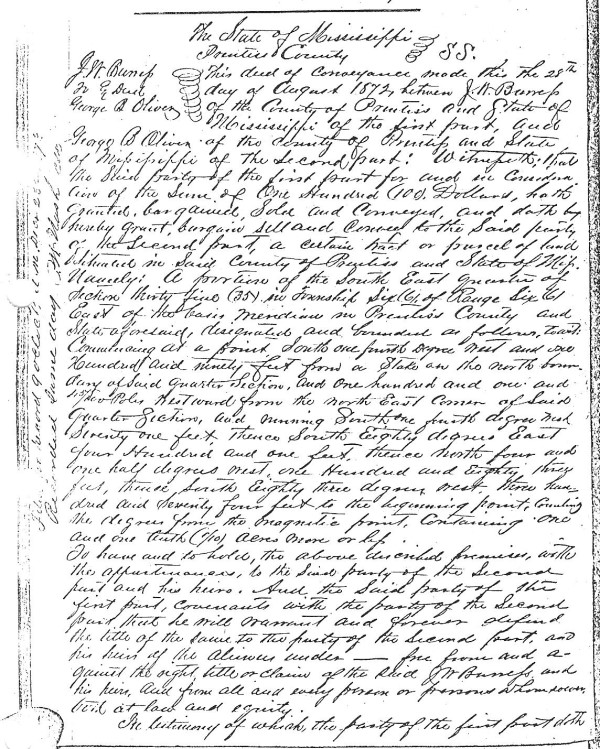 The State of Mississippi
Prentiss County } SS.
J. W. Burress
To } Deed
George B Oliver
This deed of conveyance made this the 28th
day of August 1872, between J. W. Burress
of the County of Prentiss and State of
Mississippi of the first part, and
George B Oliver of the County of Prentiss and State
of Mississippi of the second part: Witnesseth: that
the said party of the first part for and in Considera
tion of the Sum of One Hundred (100). Dollars, hath
Granted, bargained, Sold and Conveyed, and doth by
hereby Grant, bargain sell and Convey to the Said party
of the Second part, a certain tract or parcel of land
Situated in Said County of Prentiss and State of Miss.
Namely: A portion of the South East quarter of
Section thirty five (35) in Township Six (6) of Range Six (6)
East of the basis meridian in Prentiss County and
State aforesaid, designated and bounded as follows, to wit:
Commencing at a point South one fourth degree West and one
Hundred and ninety feet from a Stake on the north boun-
dary of Said Quarter Section, and one hundred and one and
Poles Westward from the north East Corner of Said
Quarter Section, and running South one fourth degree West
Seventy one feet, thence South Eighty degrees East
four Hundred and one feet, thence north four and
one half degrees west, one Hundred and Eighty three
feet, thence South Eighty three degrees west three hun-
dred and Seventy four feet to the beginning point, Counting
the degrees from the magnetic point, Containing one
and one tenth (1/10) Acres more or less.
To have and to hold, the above described premises, with
the appurtenances, to the Said party of the Second
part and his heirs. And the Said party of the
first part, Covenants with the party of the Second
part, that he will warrant and forever defend
the title of the Same to the party of the Second part, and
his heirs or the alienees under — free from and a-
gainst the right, title or claim of the Said J W Burress, and
his heirs, And from all and every person or persons whomsoever,
both at law and equity.
In testimony of which, the party of the first part doth